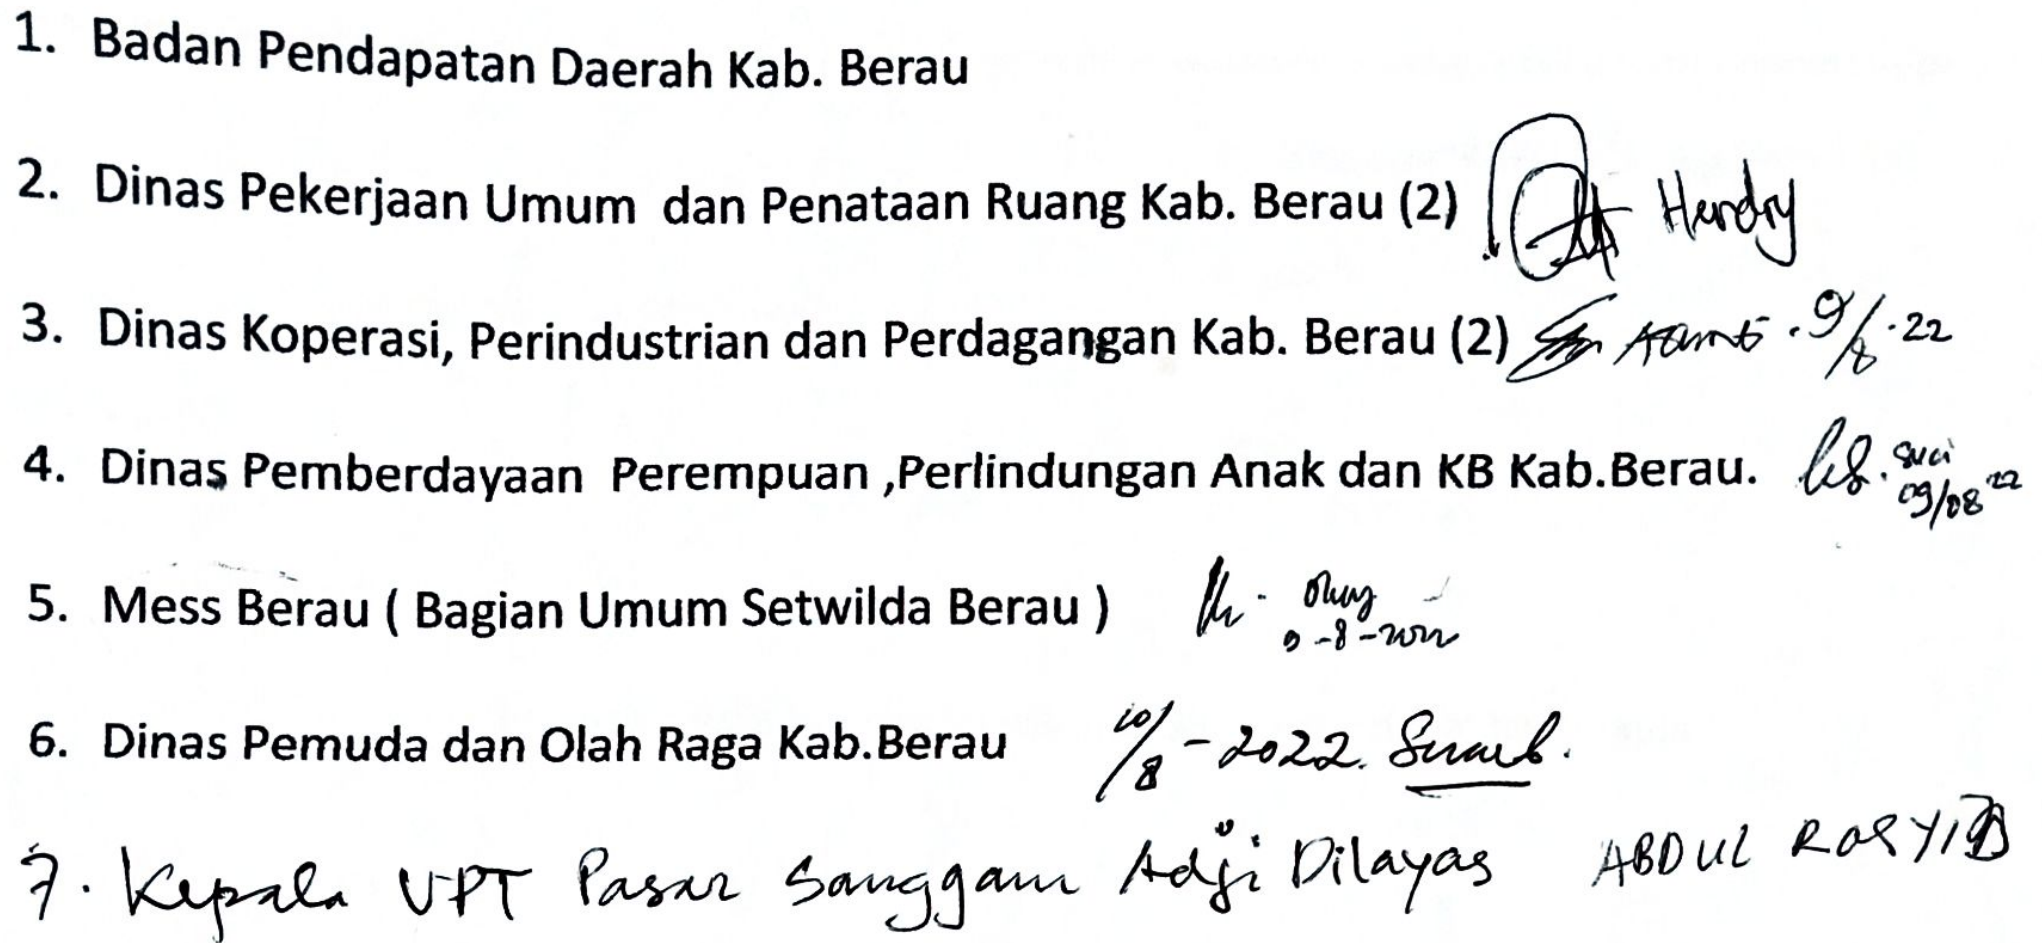 1. Badan Pendapatan Daerah Kab. Berau
2. Dinas Pekerjaan Umum dan Penataan Ruang Kab. Berau (2) Hendry
3. Dinas Koperasi, Perindustrian dan Perdagangan Kab. Berau (2) 9/8.22
4. Dinas Pemberdayaan Perempuan ,Perlindungan Anak dan KB Kab.Berau. Suci
09/08 22
5. Mess Berau ( Bagian Umum Setwilda Berau )
9-8-2022
6. Dinas Pemuda dan Olah Raga Kab.Berau 10/8-2022.
7. Kepala UPT Pasar Sanggam Adji Dilayas ABDUL ROSYID